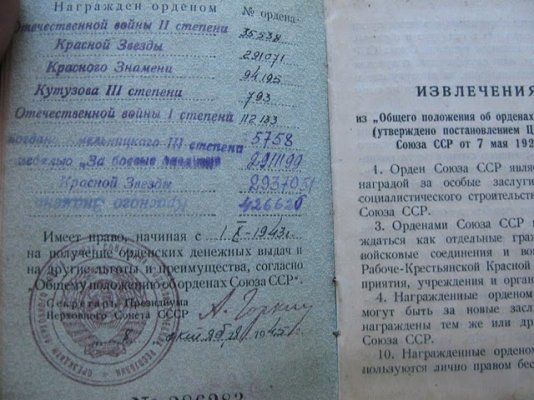 Награжден орденом № ордена
Отечественной войны II степени 35538
Красной Звезды 291071
Красного Знамени 94195
Кутузова III степени 793
Отечественной войны I степени 112133
Хмельницкого III степени 5758
медалью „За боевые заслуги 2911199
Красной Звезды 2937051
426620
Имеет право, начиная с 1.X-1943г.
на получение орденских денежных выдач и
на другие льготы и преимущества, согласно
„Общему положению об орденах Союза ССР“
Секретарь Президиума
Верховного Совета СССР А. Горкин
8 1945
ИЗВЛЕЧЕНИ
из „Общего положения об орденах
(утверждено постановлением Ц
Союза ССР от 7 мая 19
1. Орден Союза ССР являе
наградой за особые заслуги
социалистического строительств
Союза ССР.
3. Орденами Союза ССР
ждаться как отдельные граж
войсковые соединения и во
Рабоче-Крестьянской Красной
приятия, учреждения и орган
4. Награжденные орденом
могут быть за новые заслуг
награждены тем же или дру
Союза ССР.
10. Награжденные орденом
пользуются лично правом бес